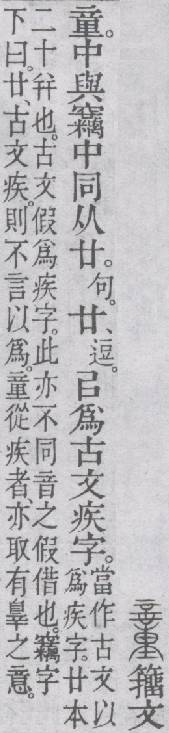 籒文
童。中與竊中同从廿。句。廿、逗。㠯爲古文疾字。當作古文以
爲疾字。廿本
二十幷也。古文假爲疾字。此亦不同音之假借也。竊字
下曰。廿、古文疾。則不言以爲。童從疾者亦取有辠之意。